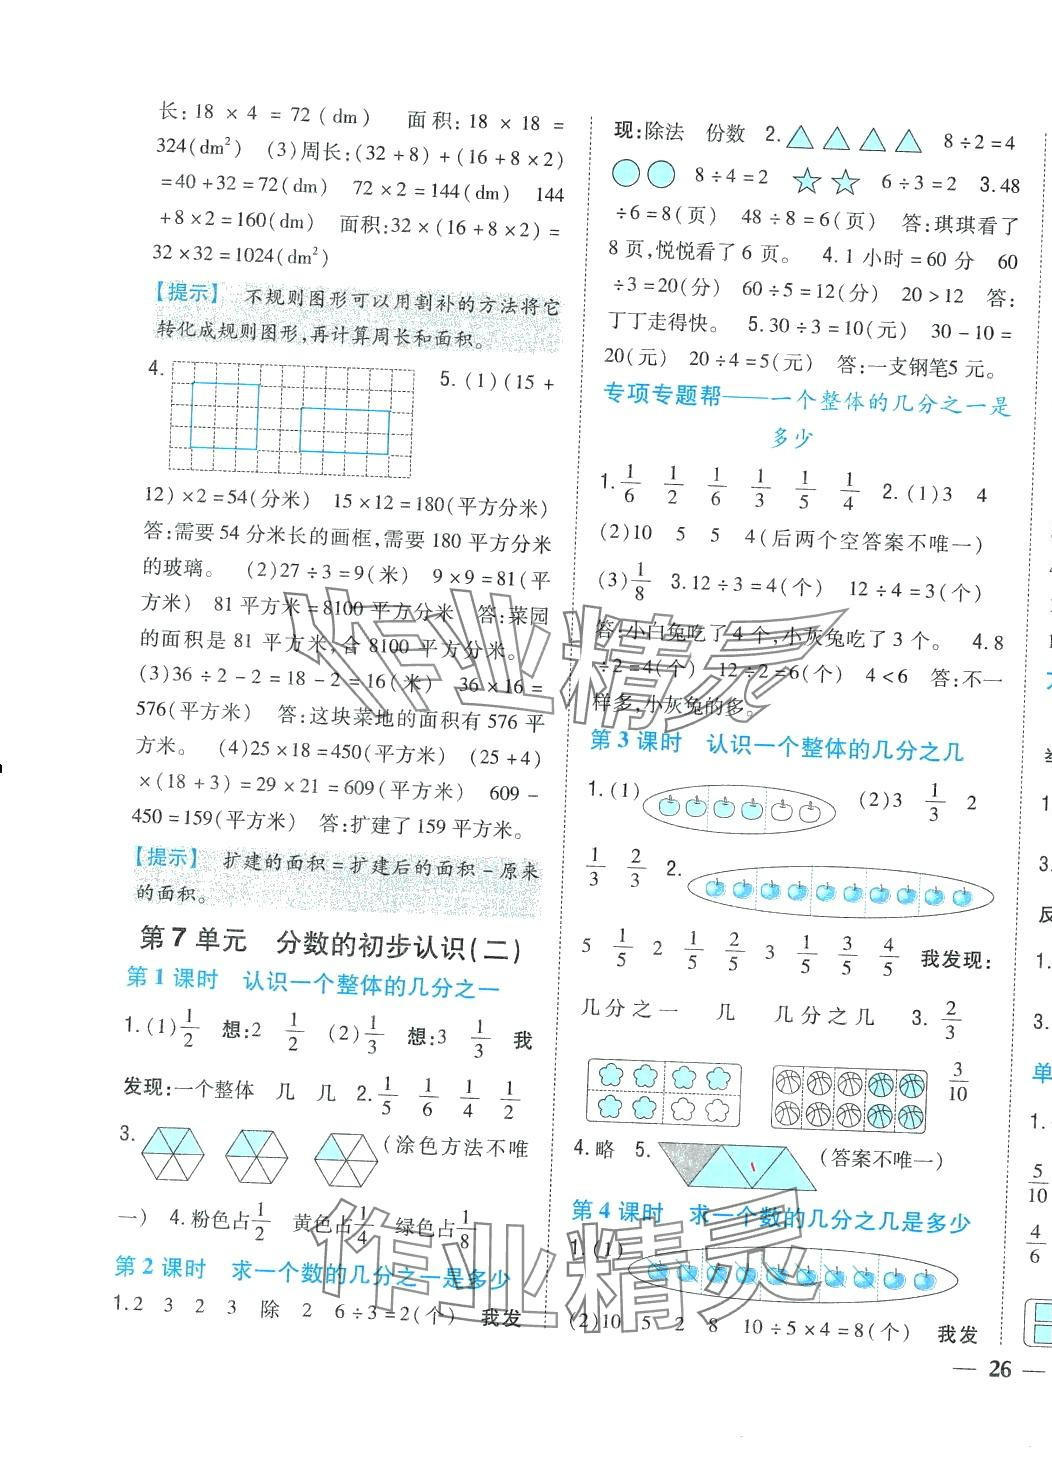 长:18 × 4 = 72(dm) 面积:18 × 18 =
324(dm²) (3)周长:(32+8)+(16+8×2)
=40+32=72(dm) 72×2=144(dm) 144
+8×2=160(dm) 面积:32×(16+8×2)=
32×32=1024(dm²)
【提示】 不规则图形可以用割补的方法将它
转化成规则图形,再计算周长和面积。
4. 5.(1)(15+
12)×2=54(分米) 15×12=180(平方分米)
答:需要54分米长的画框,需要180平方分米
的玻璃。 (2)27÷3=9(米) 9×9=81(平
方米) 81平方米=8100平方分米 答:菜园
的面积是81平方米,合8100平方分米。
(3)36÷2-2=18-2=16(米) 36×16=
576(平方米) 答:这块菜地的面积有576平
方米。 (4)25×18=450(平方米) (25+4)
×(18+3)=29×21=609(平方米) 609-
450=159(平方米) 答:扩建了159平方米。
【提示】 扩建的面积=扩建后的面积-原来
的面积。
第7单元 分数的初步认识(二)
第1课时 认识一个整体的几分之一
1.(1)1/2 想:2 1/2 (2)1/3 想:3 1/3 我
发现:一个整体 几 几 2. 1/5 1/6 1/4 1/2
3. (涂色方法不唯
一) 4.粉色占1/2 黄色占1/4 绿色占1/8
第2课时 求一个数的几分之一是多少
1.2 3 2 3 除 2 6÷3=2(个) 我发
现:除法 份数 2. 8÷2=4
8÷4=2 6÷3=2 3.48
÷6=8(页) 48÷8=6(页) 答:琪琪看了
8页,悦悦看了6页。 4.1小时=60分 60
÷3=20(分) 60÷5=12(分) 20>12 答:
丁丁走得快。 5.30÷3=10(元) 30-10=
20(元) 20÷4=5(元) 答:一支钢笔5元。
专项专题帮——一个整体的几分之一是
多少
1. 1/6 1/2 1/6 1/3 1/5 1/4 2.(1)3 4
(2)10 5 5 4(后两个空答案不唯一)
(3)1/8 3.12÷3=4(个) 12÷4=3(个)
答:小白兔吃了4个,小灰兔吃了3个。 4.8
÷2=4(个) 12÷2=6(个) 4<6 答:不一
样多,小灰兔的多。
第3课时 认识一个整体的几分之几
1.(1) (2)3 1/3 2
1/3 2/3 2.
5 1/5 2 1/5 2/5 3 1/5 3/5 4/5 我发现:
几分之一 几 几分之几 3. 2/3
3/10
4.略 5. (答案不唯一)
第4课时 求一个数的几分之几是多少
1.(1)
(2)10 5 2 8 10÷5×4=8(个) 我发
— 26 —
作业精灵
作业精灵
举
1.
3.
反
1.
3.
单
1.
5/10
4/6